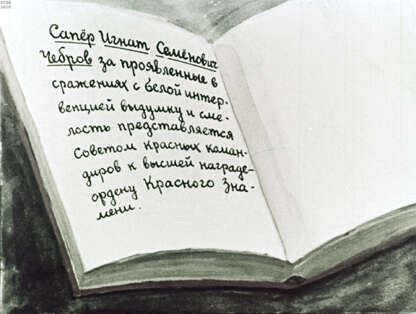 Сапёр Игнат Семёнович
Чебров за проявленные в
сражениях с белой интер-
венцией выдумку и сме-
лость представляется
Советом красных коман-
диров к высшей награде-
ордену Красного Зна-
мени.